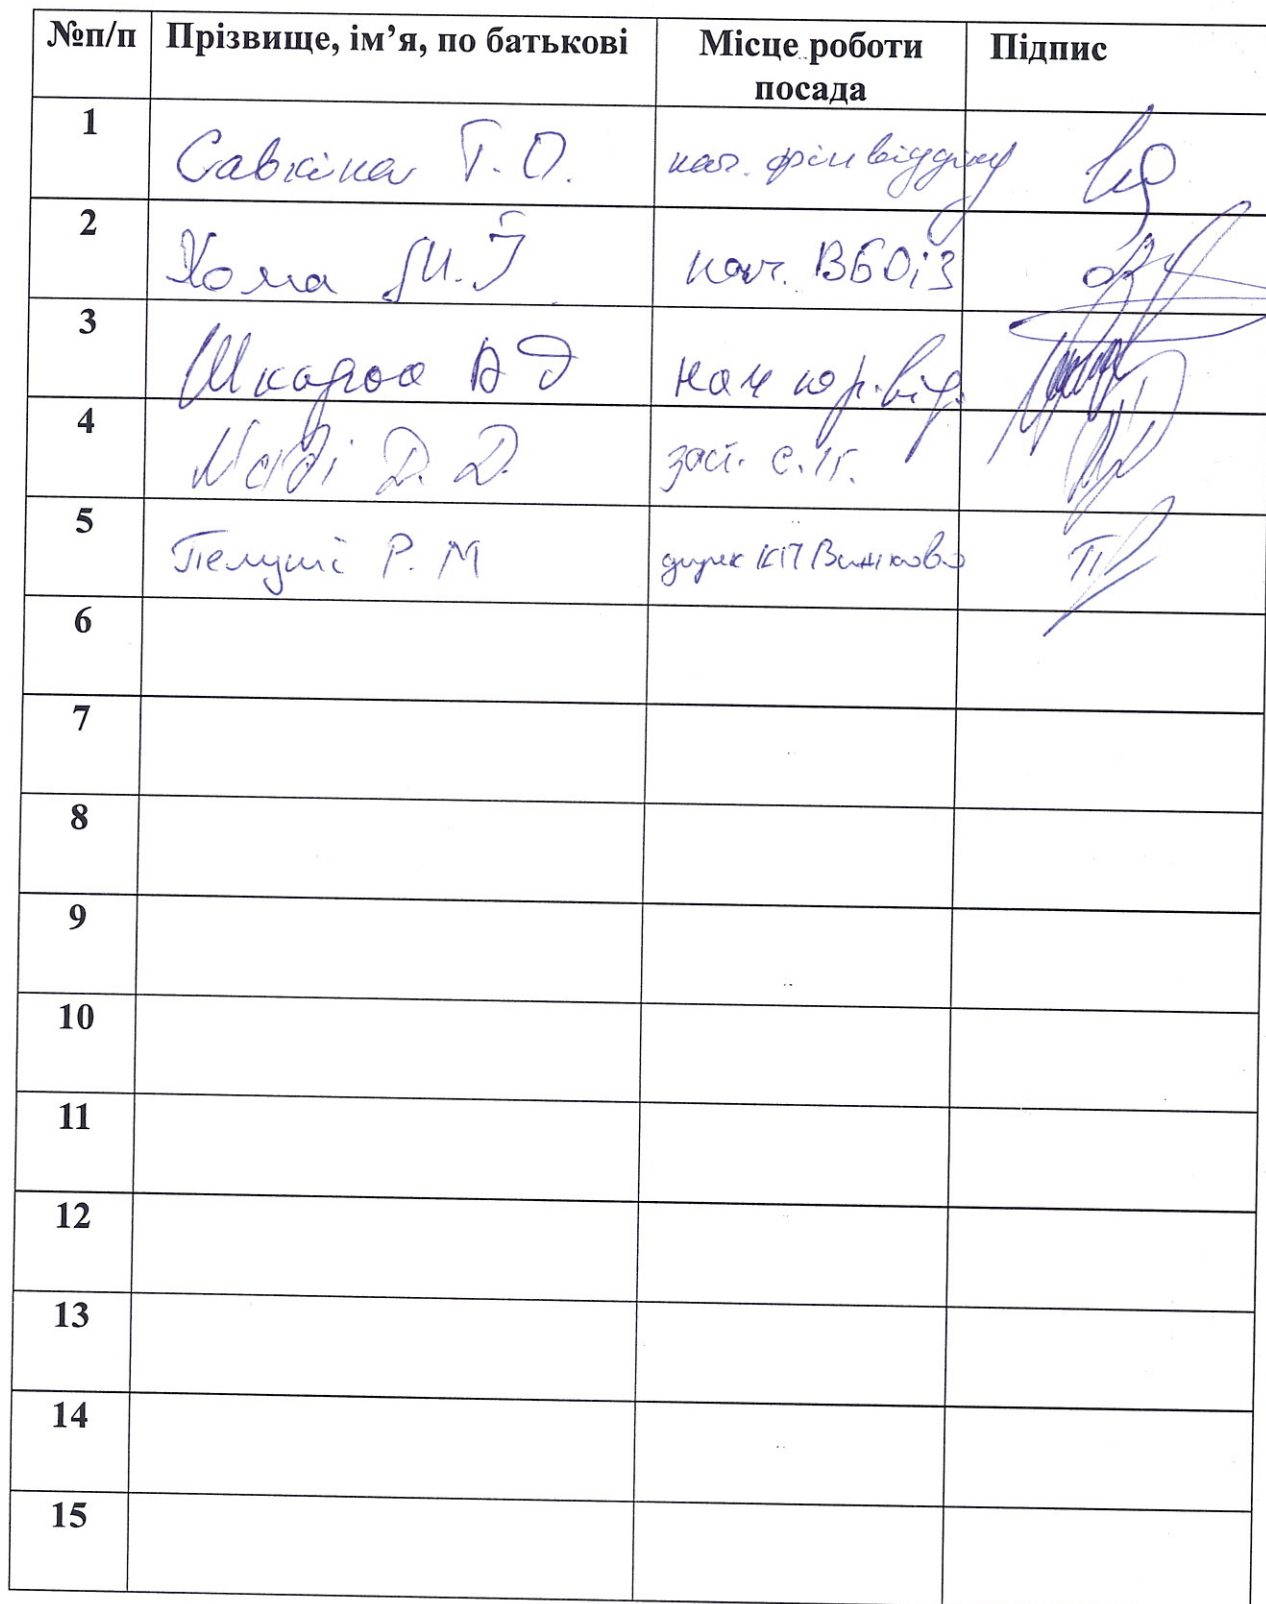 №п/п Прізвище, ім’я, по батькові Місце роботи Підпис
посада
1 Савкіна Т. О. нач. фін відділу
2 Хома М. І. нач. ВБОіЗ
3 Шкарба нач юр. від.
4 Д. Д. заст. с. г.
5 Пелуші Р. М дирек КП
6
7
8
9
10
11
12
13
14
15